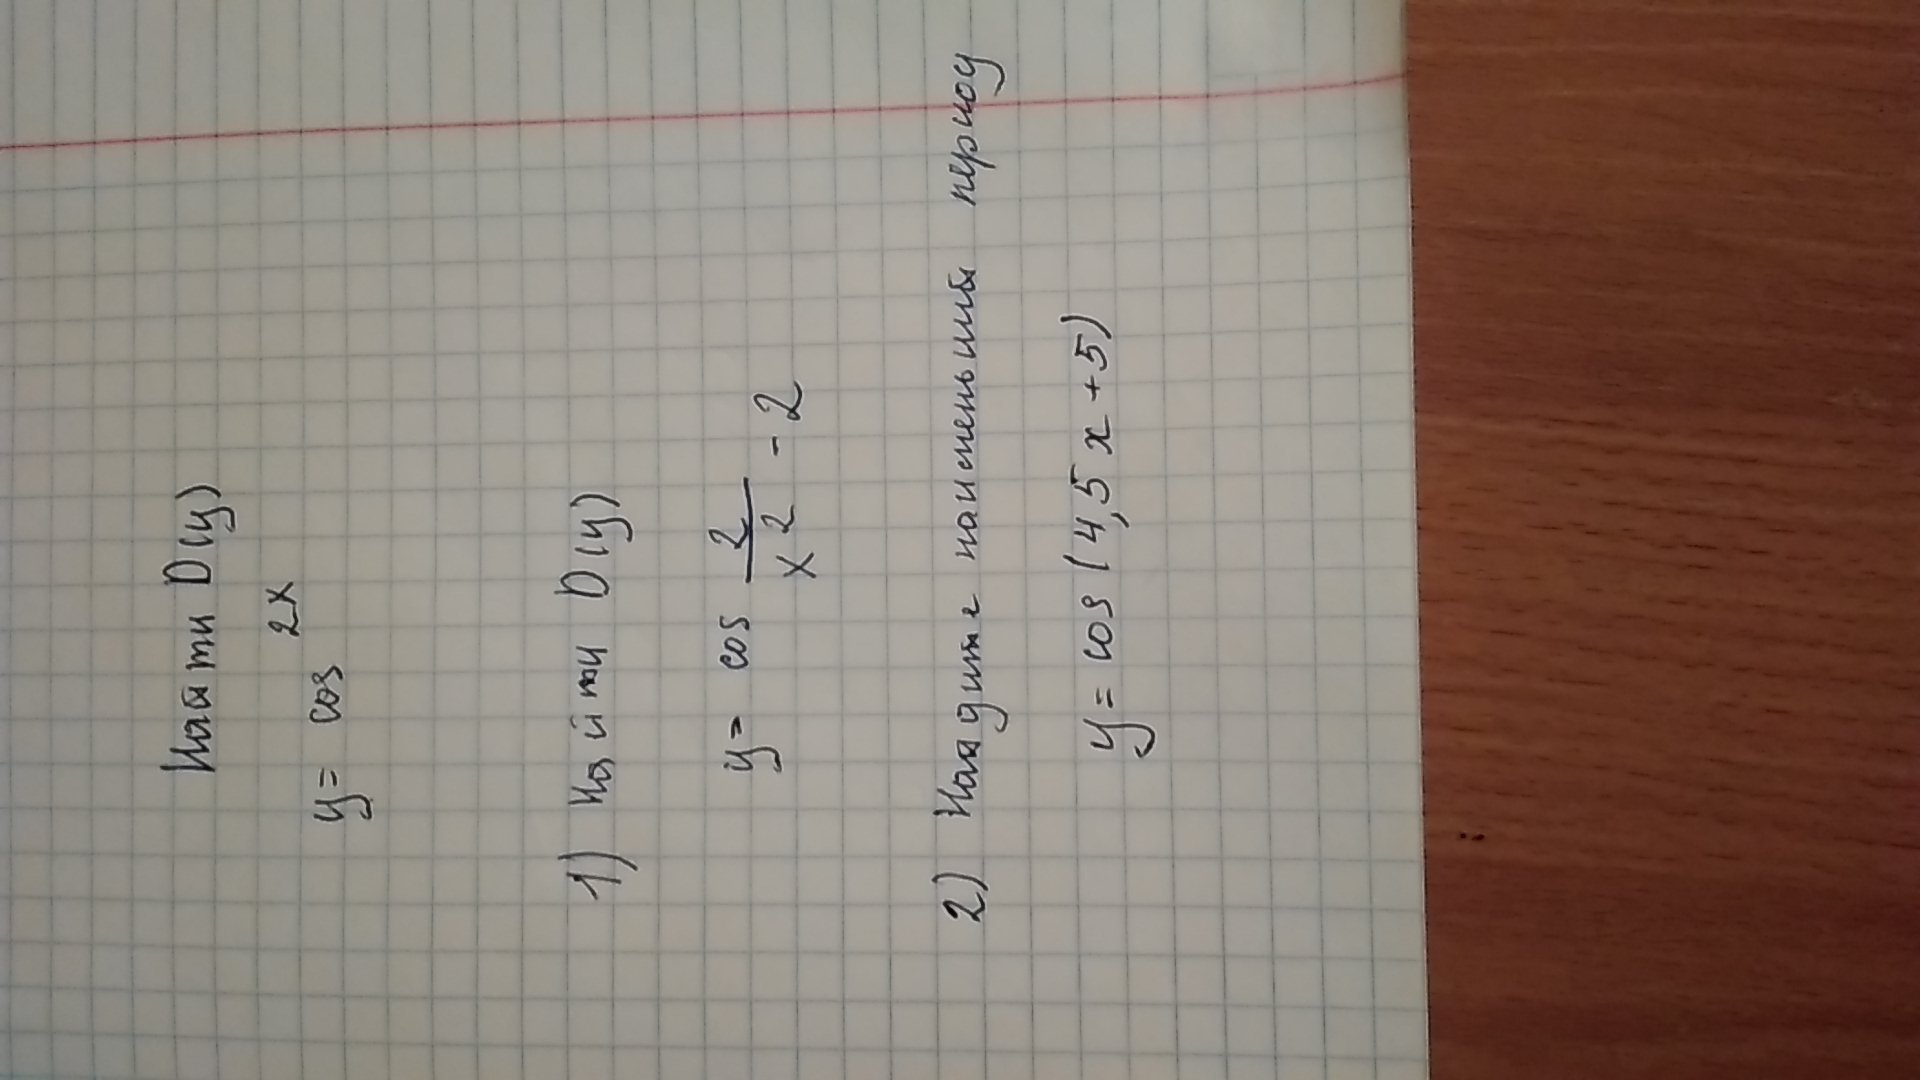 Найти D(y)
y = cos 2x
1) Найти D(y)
y = cos 2/x² - 2
2) Найдите наименьший период
y = cos (4,5x + 5)